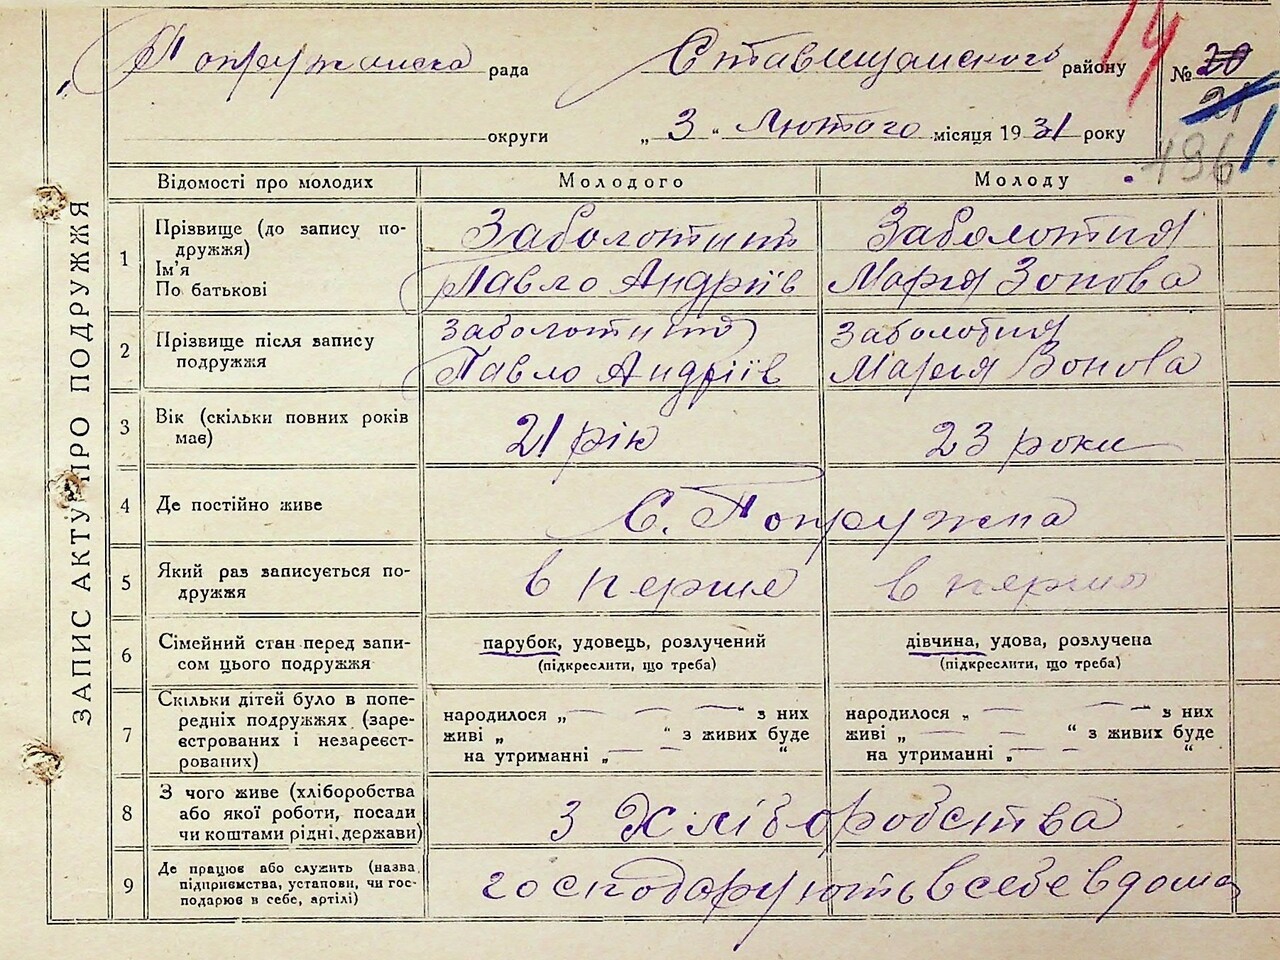 Попружанска рада Ставищанского району № 20
округи „ 3 “ Лютого місяця 1931 року 21
14
196
ЗАПИС АКТУ ПРО ПОДРУЖЖЯ
Відомості про молодих Молодого Молоду
1 Прізвище (до запису подружжя) Заболотний Заболотня
Ім'я
По батькові Павло Андріїв Марія Зонова
2 Прізвище після запису подружжя Заболотний Заболотня
Павло Андріїв Марія
3 Вік (скільки повних років має) 21 рік 23 роки
4 Де постійно живе С. Попружна
5 Який раз записується подружжя в перше в перше
6 Сімейний стан перед записом цього подружжя парубок, удовець, розлучений дівчина, удова, розлучена
(підкреслити, що треба) (підкреслити, що треба)
7 Скільки дітей було в попередніх подружжях (зареєстрованих і незареєстрованих)
народилося „ — — — “ з них народилося „ — — “ з них
живі „ “ з живих буде живі „ — — “ з живих буде
на утриманні „ — — “ на утриманні „ — — “
8 З чого живе (хліборобства або якої роботи, посади чи коштами рідні, держави) З Хліборобства
9 Де працює або служить (назва підприємства, установи, чи господарює в себе, артілі) господарують в себе вдома